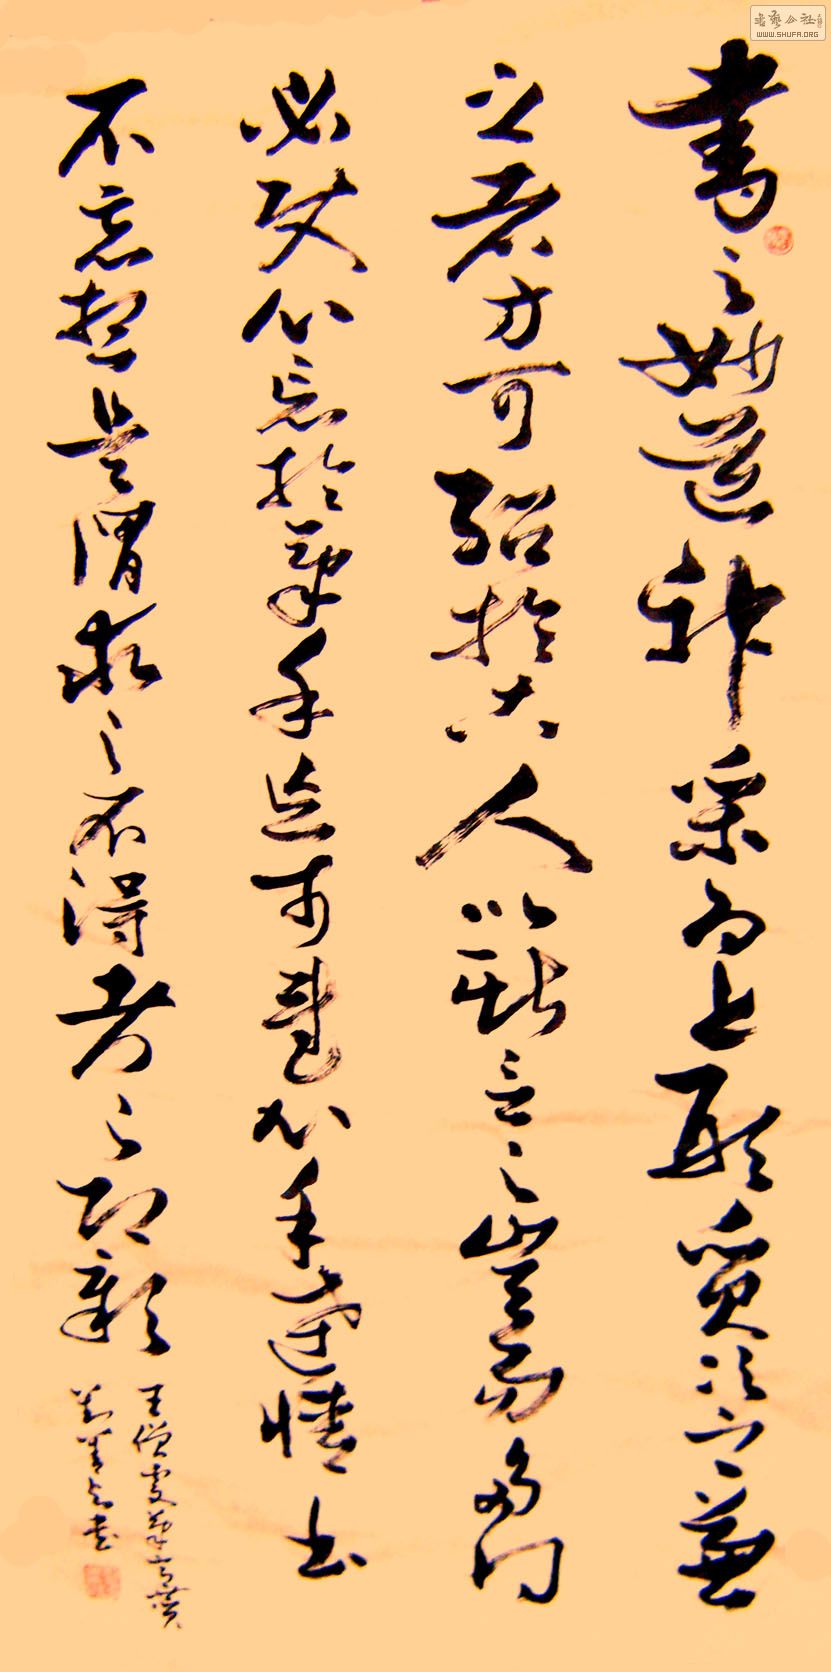 書藝公社
WWW.SHUFA.ORG
書之妙道神采為上形質次之兼
之者方可紹於古人以斯言之豈易多得
必使心忘於筆手忘於書心手達情書
不忘想是謂求之不得考之即彰
王僧虔筆意贊
書